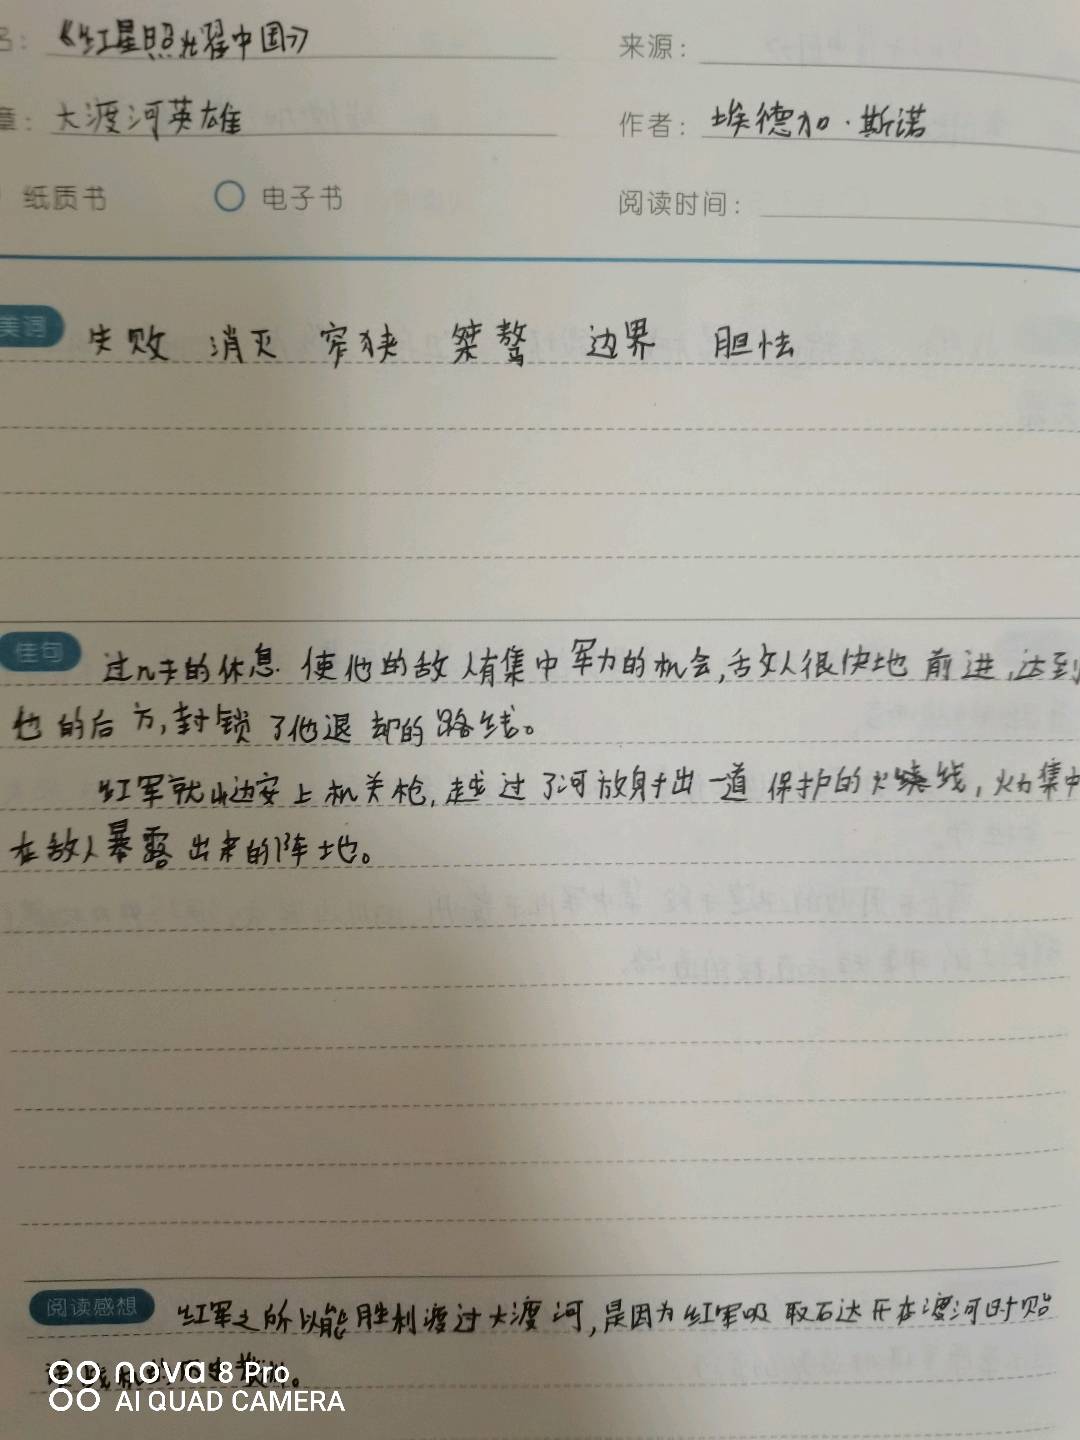 名：《红星照耀中国》 来源：
章：大渡河英雄 作者：埃德加·斯诺
纸质书 电子书 阅读时间：
美词 失败 消灭 窄狭 桀骜 边界 胆怯
佳句 过几天的休息.使他的敌人有集中军力的机会,敌人很快地前进,达到
他的后方,封锁了他退却的路线。
红军就山边安上机关枪,越过了河放射出一道保护的火烧线,火力集中
在敌人暴露出来的阵地。
阅读感想 红军之所以能胜利渡过大渡河,是因为红军吸取石达开在渡河时贻
误战机的历史教训。
nova 8 Pro
AI QUAD CAMERA